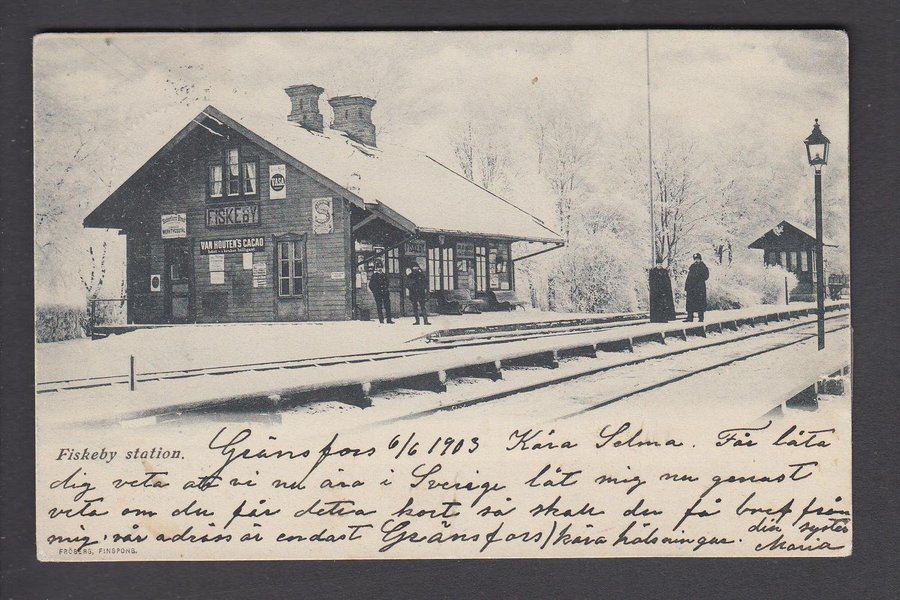 VASA
FISKEBY
S
VAN HOUTEN'S CACAO
FISKEBY
Fiskeby station.
Gränsfors 6/6 1903 Kära Selma. Får låta
dig veta att vi nu ära i Sverige låt mig nu genast
veta om du får detta kort så skall du få bref från
mig, vår adress är endast Gränsfors) kära hälsningar. din syster
Maria
FRÖBERG, FINSPONG.